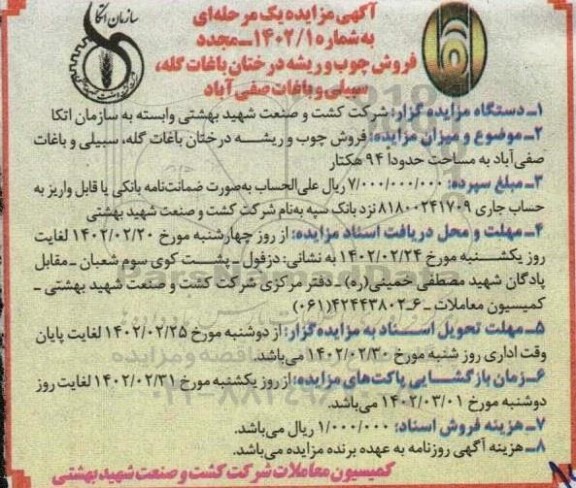 سازمان اتکا
آگهی مزایده یک مرحله‌ای
به شماره ۱۴۰۲/۱ــ مجدد
فروش چوب و ریشه درختان باغات گله،
سبیلی و باغات صفی آباد
۱ــ دستگاه مزایده گزار: شرکت کشت و صنعت شهید بهشتی وابسته به سازمان اتکا
۲ــ موضوع و میزان مزایده: فروش چوب و ریشه درختان باغات گله، سبیلی و باغات
صفی‌آباد به مساحت حدودا ۹۴ هکتار
۳ــ مبلغ سپرده: ۷/۰۰۰/۰۰۰/۰۰۰ ریال علی‌الحساب به‌صورت ضمانت‌نامه بانکی یا قابل واریز به
حساب جاری ۸۱۸۰۰۲۴۱۷۰۹ نزد بانک سپه به‌نام شرکت کشت و صنعت شهید بهشتی
۴ــ مهلت و محل دریافت اسناد مزایده: از روز چهارشنبه مورخ ۱۴۰۲/۰۲/۲۰ لغایت
روز یکشنبه مورخ ۱۴۰۲/۰۲/۲۴ به نشانی: دزفول ــ پشت کوی سوم شعبان ــ مقابل
پادگان شهید مصطفی خمینی(ره) ــ دفتر مرکزی شرکت کشت و صنعت شهید بهشتی ــ
کمیسیون معاملات ــ ۶ـ۴۲۴۴۳۸۰۲(۰۶۱)
۵ــ مهلت تحویل اسناد به مزایده‌گزار: از دوشنبه مورخ ۱۴۰۲/۰۲/۲۵ لغایت پایان
وقت اداری روز شنبه مورخ ۱۴۰۲/۰۲/۳۰ می‌باشد.
۶ــ زمان بازگشایی پاکت‌های مزایده: از روز یکشنبه مورخ ۱۴۰۲/۰۲/۳۱ لغایت روز
دوشنبه مورخ ۱۴۰۲/۰۳/۰۱ می‌باشد.
۷ــ هزینه فروش اسناد: ۱/۰۰۰/۰۰۰ ریال می‌باشد.
۸ــ هزینه آگهی روزنامه به عهده برنده مزایده می‌باشد.
کمیسیون معاملات شرکت کشت و صنعت شهید بهشتی
ParsNamadData